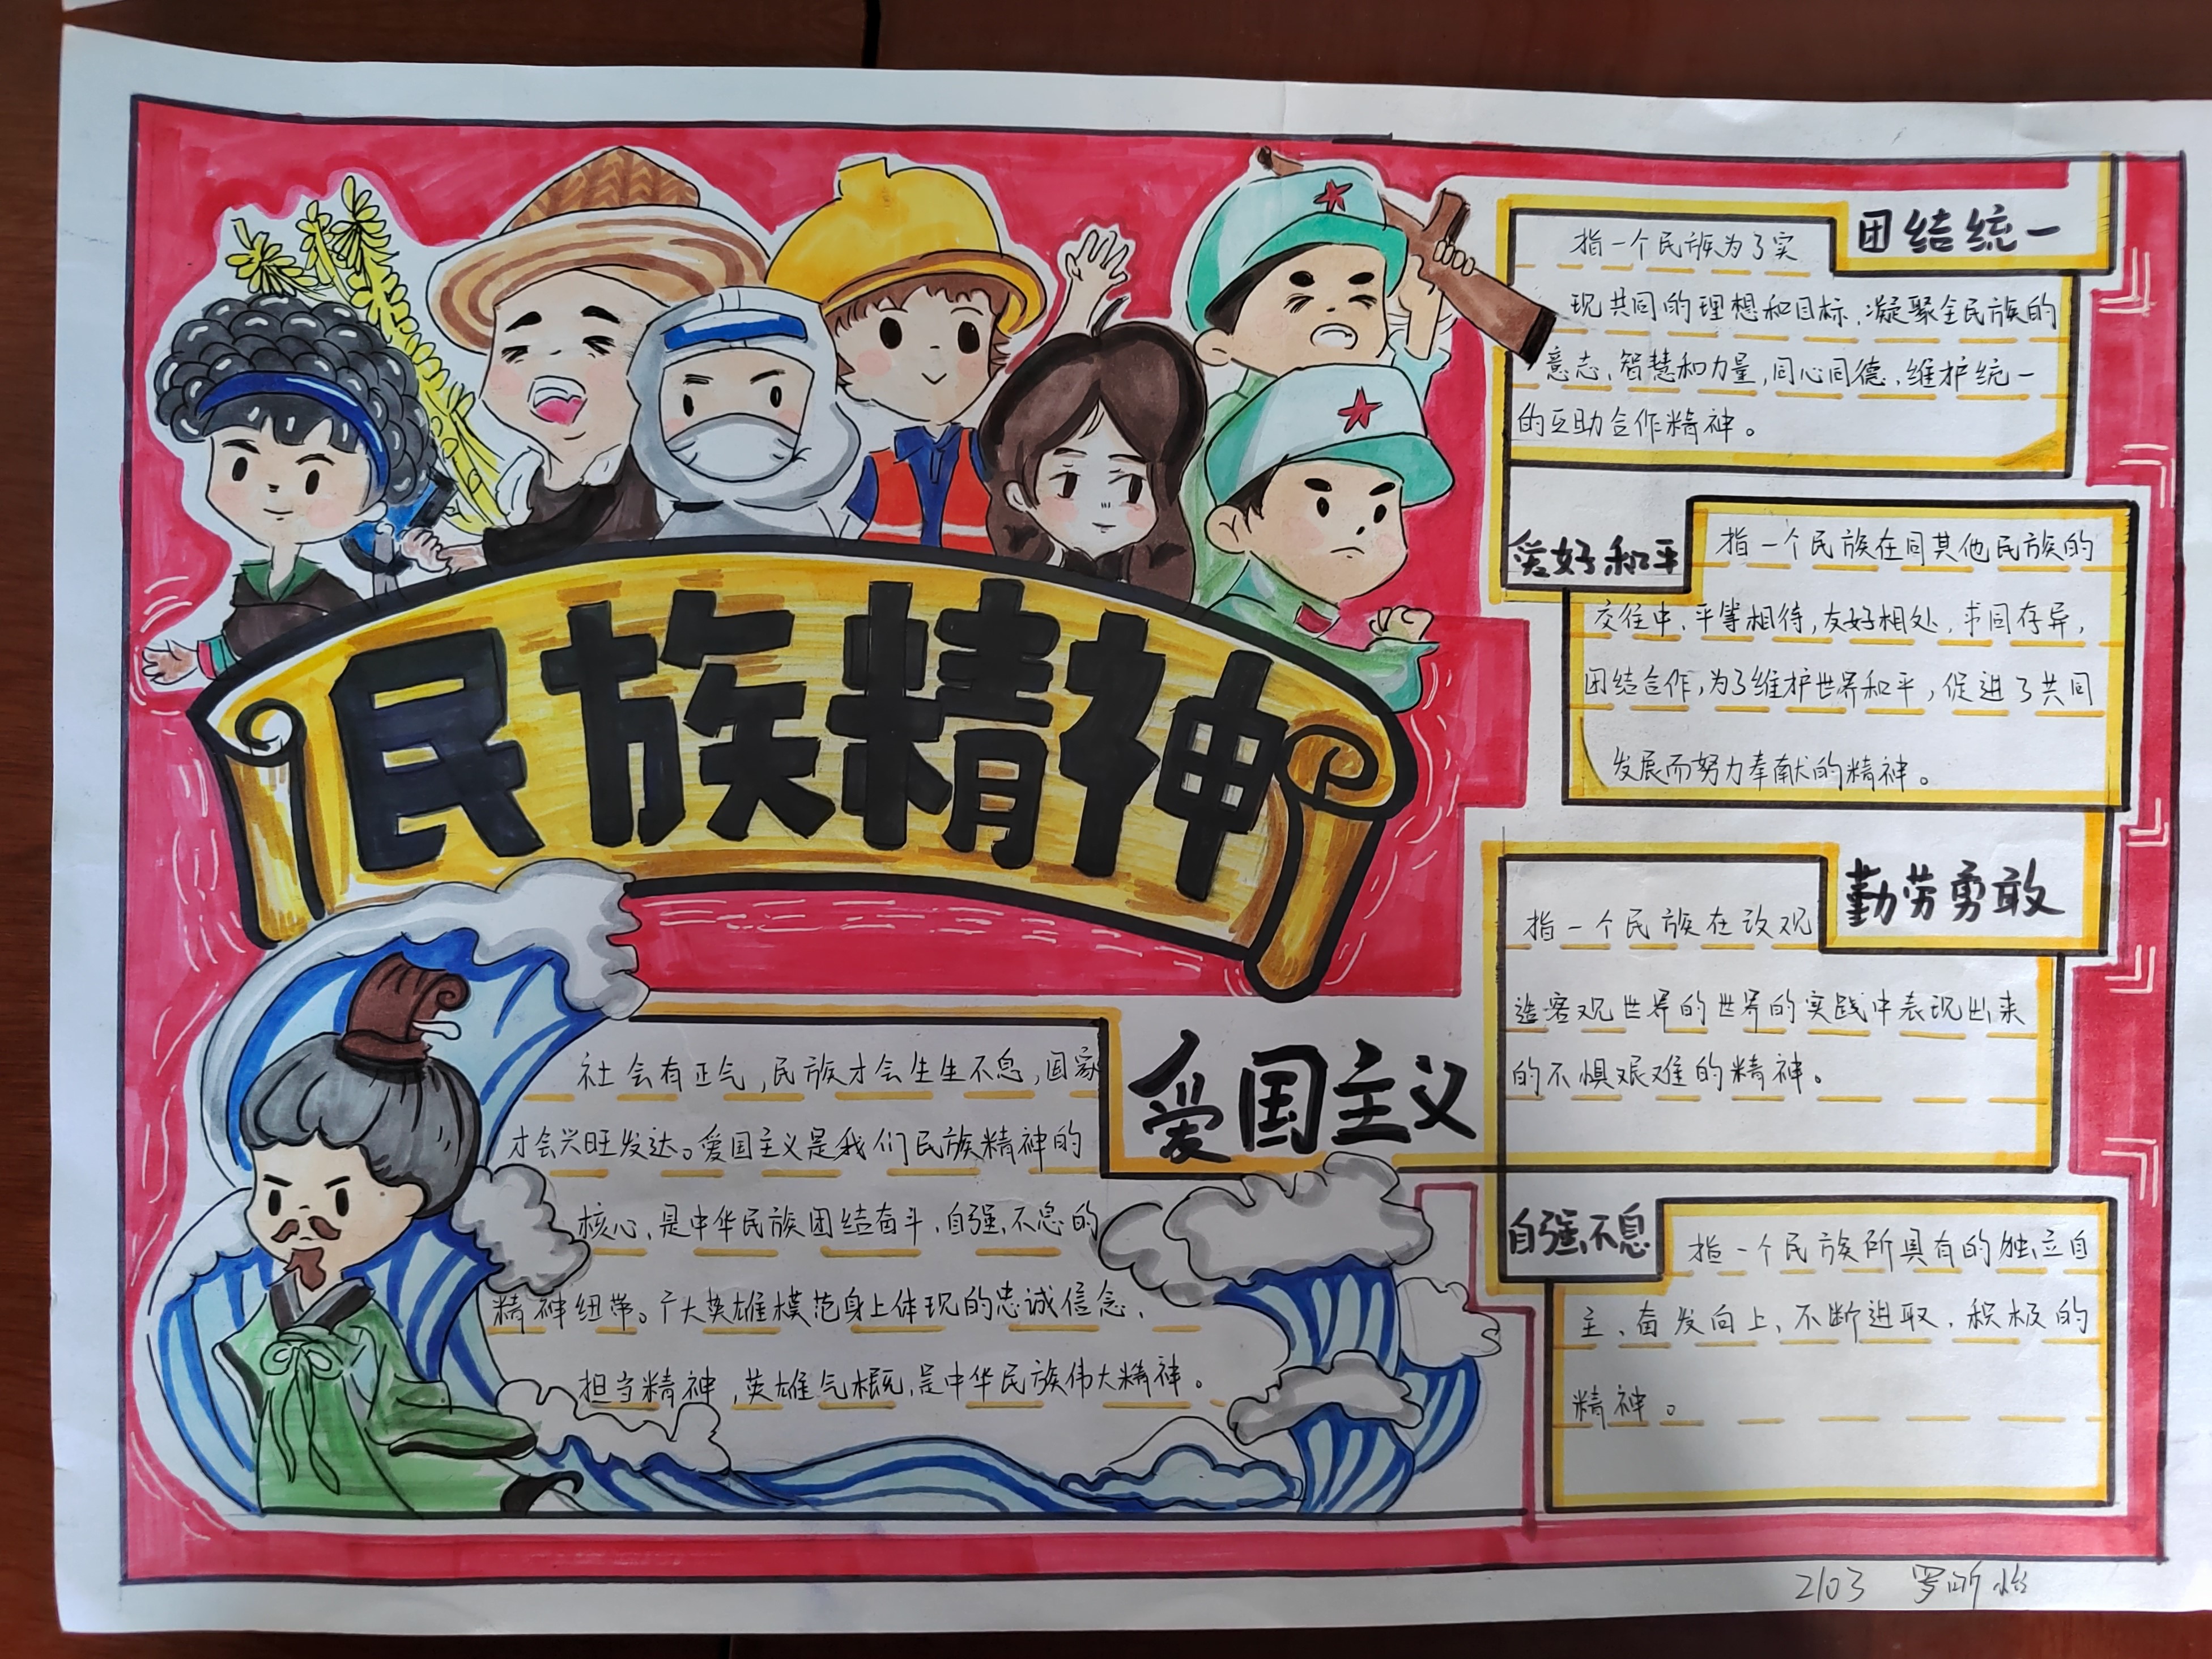 民族精神
团结统一
指一个民族为了实
现共同的理想和目标,凝聚全民族的
意志、智慧和力量,同心同德,维护统一
的互助合作精神。
爱好和平
指一个民族在同其他民族的
交往中,平等相待,友好相处,求同存异,
团结合作,为了维护世界和平,促进了共同
发展而努力奉献的精神。
勤劳勇敢
指一个民族在改观
造客观世界的世界的实践中表现出来
的不惧艰难的精神。
自强不息
指一个民族所具有的独立自
主、奋发向上、不断进取、积极的
精神。
爱国主义
社会有正气,民族才会生生不息,国家
才会兴旺发达。爱国主义是我们民族精神的
核心,是中华民族团结奋斗,自强不息的
精神纽带。广大英雄模范身上体现的忠诚信念、
担当精神,英雄气概,是中华民族伟大精神。
2103 罗昕怡